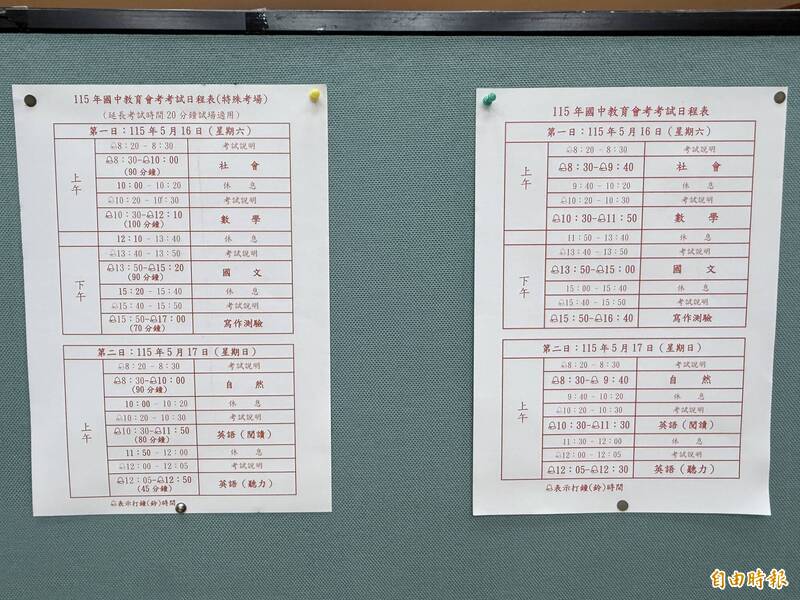 115 年國中教育會考考試日程表(特殊考場)
(延長考試時間 20 分鐘試場適用)
第一日：115 年 5 月 16 日 (星期六)
上午
8：20 - 8：30 考試說明
8：30-10：00 (90 分鐘) 社 會
10：00 - 10：20 休 息
10：20 - 10：30 考試說明
10：30-12：10 (100 分鐘) 數 學
12：10 - 13：40 休 息
下午
13：40 - 13：50 考試說明
13：50-15：20 (90 分鐘) 國 文
15：20 - 15：40 休 息
15：40 - 15：50 考試說明
15：50-17：00 (70 分鐘) 寫作測驗
第二日：115 年 5 月 17 日 (星期日)
上午
8：20 - 8：30 考試說明
8：30-10：00 (90 分鐘) 自 然
10：00 - 10：20 休 息
10：20 - 10：30 考試說明
10：30-11：50 (80 分鐘) 英語 (閱讀)
11：50 - 12：00 休 息
12：00 - 12：05 考試說明
12：05-12：50 (45 分鐘) 英語 (聽力)
表示打鐘(鈴)時間
115 年國中教育會考考試日程表
第一日：115 年 5 月 16 日 (星期六)
上午
8：20 - 8：30 考試說明
8：30-9：40 社 會
9：40 - 10：20 休 息
10：20 - 10：30 考試說明
10：30-11：50 數 學
11：50 - 13：40 休 息
下午
13：40 - 13：50 考試說明
13：50-15：00 國 文
15：00 - 15：40 休 息
15：40 - 15：50 考試說明
15：50-16：40 寫作測驗
第二日：115 年 5 月 17 日 (星期日)
上午
8：20 - 8：30 考試說明
8：30- 9：40 自 然
9：40 - 10：20 休 息
10：20 - 10：30 考試說明
10：30-11：30 英語 (閱讀)
11：30 - 12：00 休 息
12：00 - 12：05 考試說明
12：05-12：30 英語 (聽力)
表示打鐘(鈴)時間
自由時報